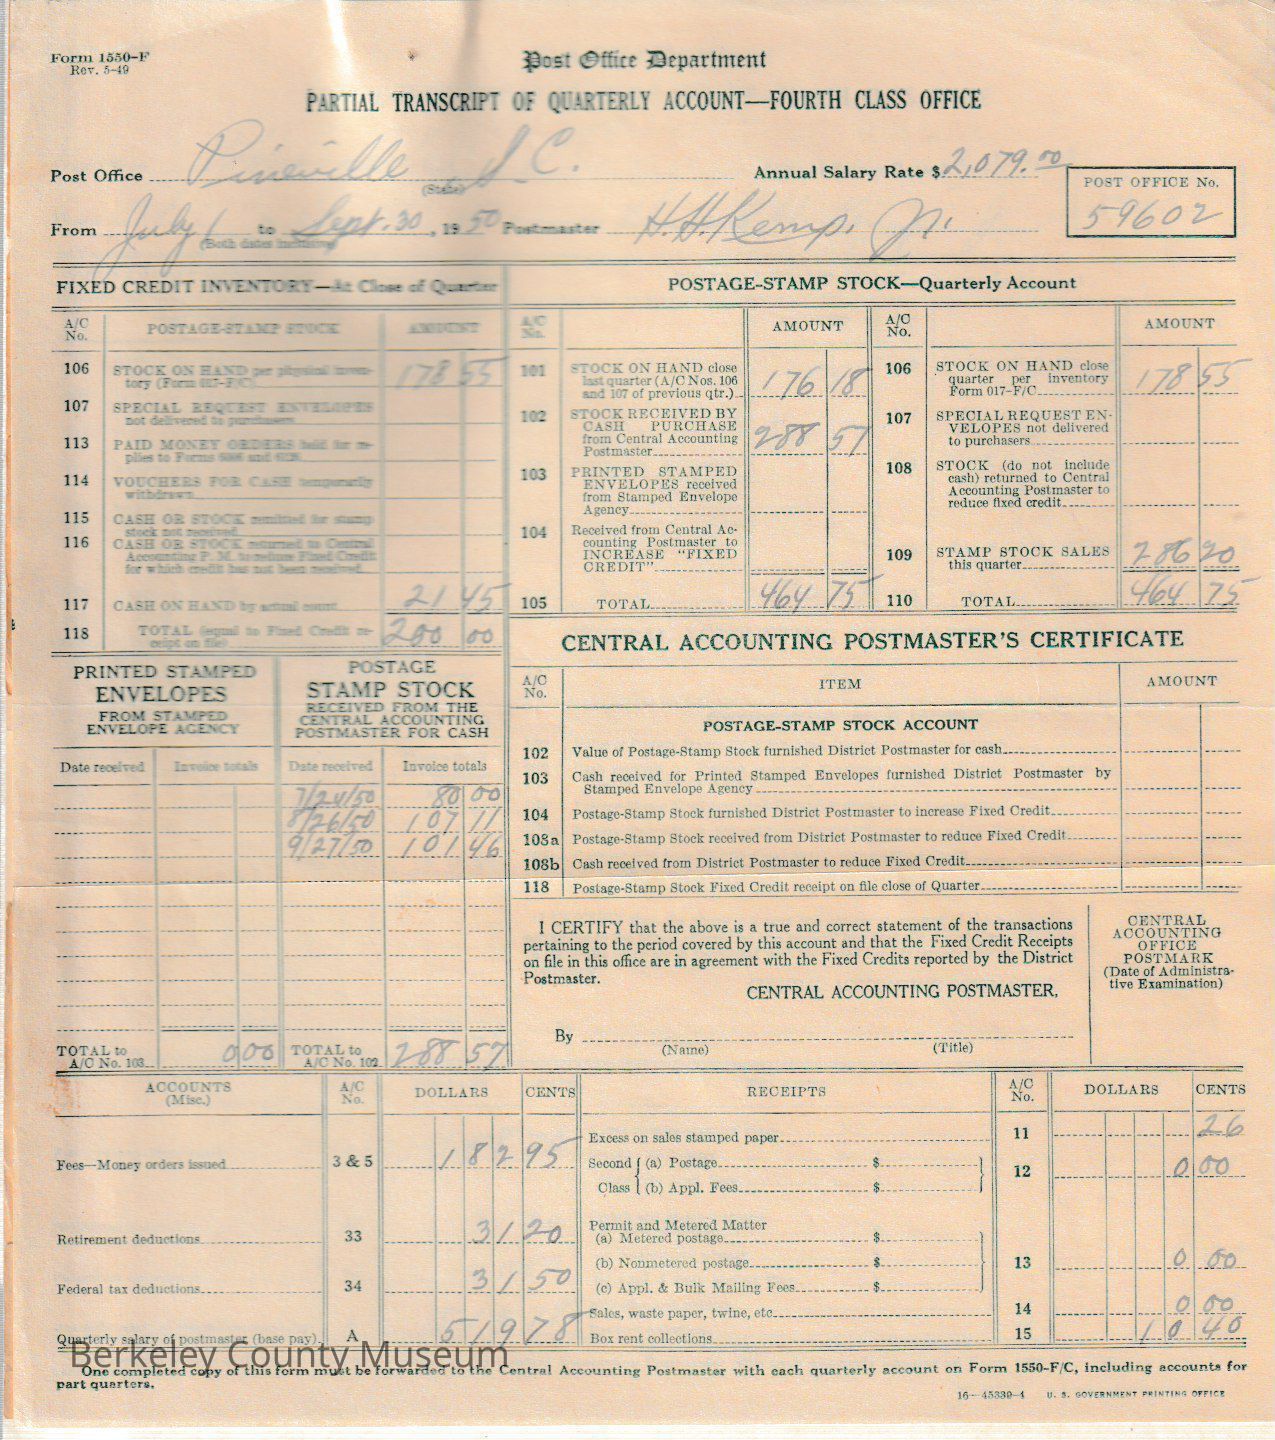 Form 1550-F
Rev. 5-49
Post Office Department
PARTIAL TRANSCRIPT OF QUARTERLY ACCOUNT—FOURTH CLASS OFFICE
Post Office Pineville S C.
(State)
Annual Salary Rate $ 2,079.00
POST OFFICE No.
59602
From July 1 to Sept. 30, 1950 Postmaster H.H. Kemp, Jr.
(Both dates inclusive)
FIXED CREDIT INVENTORY—At Close of Quarter
A/C No. POSTAGE-STAMP STOCK AMOUNT
106 STOCK ON HAND per physical inven-
tory (Form 017-F/C) 178 55
107 SPECIAL REQUEST ENVELOPES
not delivered to purchasers
113 PAID MONEY ORDERS held for re-
plies to Forms and
114 VOUCHERS FOR CASH temporarily
withdrawn
115 CASH OR STOCK remitted for stamp
stock not received
116 CASH OR STOCK returned to Central
Accounting P. M. to reduce Fixed Credit
for which credit has not been received
117 CASH ON HAND by actual count 21 45
118 TOTAL (equal to Fixed Credit re-
ceipt on file) 200 00
POSTAGE-STAMP STOCK—Quarterly Account
A/C No. AMOUNT
101 STOCK ON HAND close
last quarter (A/C Nos. 106
and 107 of previous qtr.) 176 18
102 STOCK RECEIVED BY
CASH PURCHASE
from Central Accounting
Postmaster 288 57
103 PRINTED STAMPED
ENVELOPES received
from Stamped Envelope
Agency
104 Received from Central Ac-
counting Postmaster to
INCREASE "FIXED
CREDIT"
105 TOTAL 464 75
A/C No. AMOUNT
106 STOCK ON HAND close
quarter per inventory
Form 017-F/C 178 55
107 SPECIAL REQUEST EN-
VELOPES not delivered
to purchasers
108 STOCK (do not include
cash) returned to Central
Accounting Postmaster to
reduce fixed credit
109 STAMP STOCK SALES
this quarter 286 20
110 TOTAL 464 75
PRINTED STAMPED
ENVELOPES
FROM STAMPED
ENVELOPE AGENCY
Date received Invoice totals
TOTAL to
A/C No. 103 0 00
POSTAGE
STAMP STOCK
RECEIVED FROM THE
CENTRAL ACCOUNTING
POSTMASTER FOR CASH
Date received Invoice totals
7/24/50 80 00
8/26/50 107 11
9/27/50 101 46
TOTAL to
A/C No. 102 288 57
CENTRAL ACCOUNTING POSTMASTER'S CERTIFICATE
A/C No. ITEM AMOUNT
POSTAGE-STAMP STOCK ACCOUNT
102 Value of Postage-Stamp Stock furnished District Postmaster for cash
103 Cash received for Printed Stamped Envelopes furnished District Postmaster by
Stamped Envelope Agency
104 Postage-Stamp Stock furnished District Postmaster to increase Fixed Credit
108a Postage-Stamp Stock received from District Postmaster to reduce Fixed Credit
108b Cash received from District Postmaster to reduce Fixed Credit
118 Postage-Stamp Stock Fixed Credit receipt on file close of Quarter
I CERTIFY that the above is a true and correct statement of the transactions
pertaining to the period covered by this account and that the Fixed Credit Receipts
on file in this office are in agreement with the Fixed Credits reported by the District
Postmaster.
CENTRAL ACCOUNTING POSTMASTER,
By
(Name) (Title)
CENTRAL
ACCOUNTING
OFFICE
POSTMARK
(Date of Administra-
tive Examination)
ACCOUNTS
(Misc.) A/C No. DOLLARS CENTS
Fees—Money orders issued 3 & 5 182 95
Retirement deductions 33 31 20
Federal tax deductions 34 31 50
Quarterly salary of postmaster (base pay) A 519 78
RECEIPTS A/C No. DOLLARS CENTS
Excess on sales stamped paper 11 26
Second Class (a) Postage $
(b) Appl. Fees $ 12 0 00
Permit and Metered Matter
(a) Metered postage $
(b) Nonmetered postage $ 13 0 00
(c) Appl. & Bulk Mailing Fees $
Sales, waste paper, twine, etc 14 0 00
Box rent collections 15 10 40
Berkeley County Museum
One completed copy of this form must be forwarded to the Central Accounting Postmaster with each quarterly account on Form 1550-F/C, including accounts for
part quarters.
16—45339-4 U. S. GOVERNMENT PRINTING OFFICE